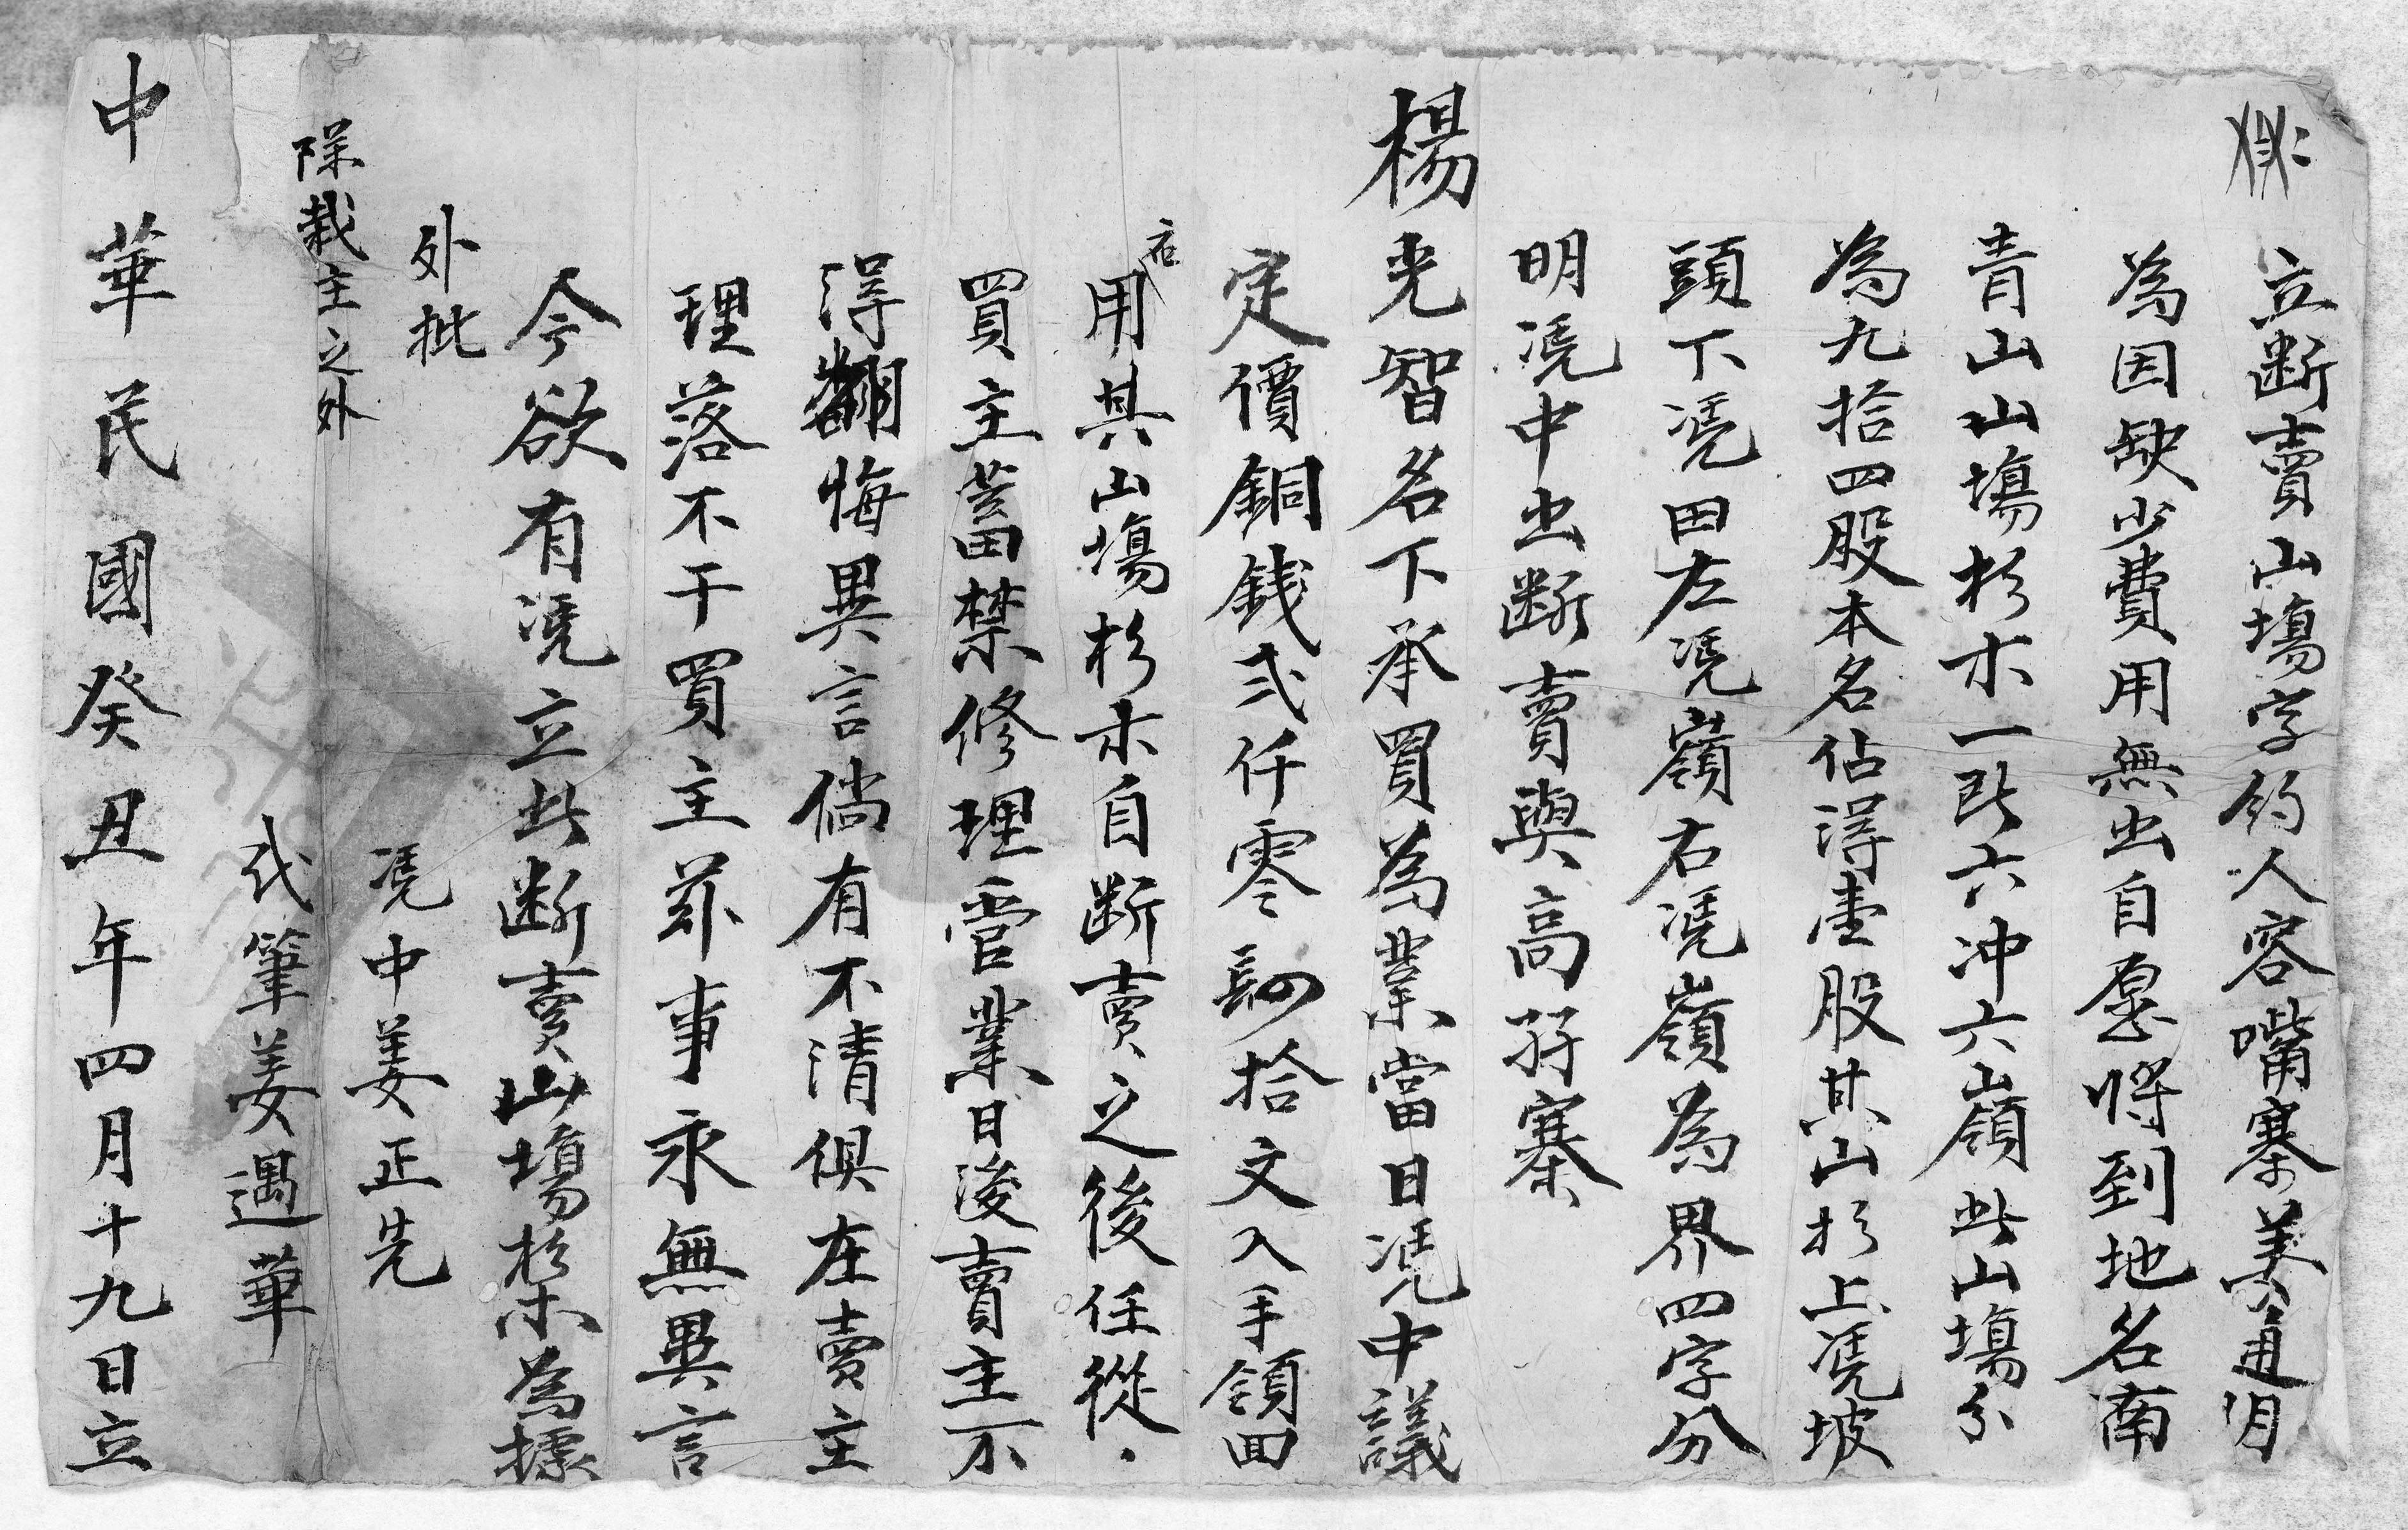 立断賣山塲字約人容嘴寨姜通月
為因缺少費用無出自愿将到地名南
青山山塲杉木一所六冲六嶺此山塲分
為九拾四股本名佔得壹股其山杉上凴坡
頭下凴田左凴嶺右凴嶺為界四字分
明凴中出断賣與高孖寨
楊光智名下承買為業當日凴中議
定價銅錢弍仟零肆拾文入手領回
應用其山塲杉木自断賣之後任從
買主蓄禁修理管業日後賣主不
得翻悔異言倘有不清俱在賣主
理落不干買主菲事永無異言
今欲有凴立此断賣山塲杉木為據
外批
除栽主之外
凴中姜正先
代筆姜遇華
中華民國癸丑年四月十九日立